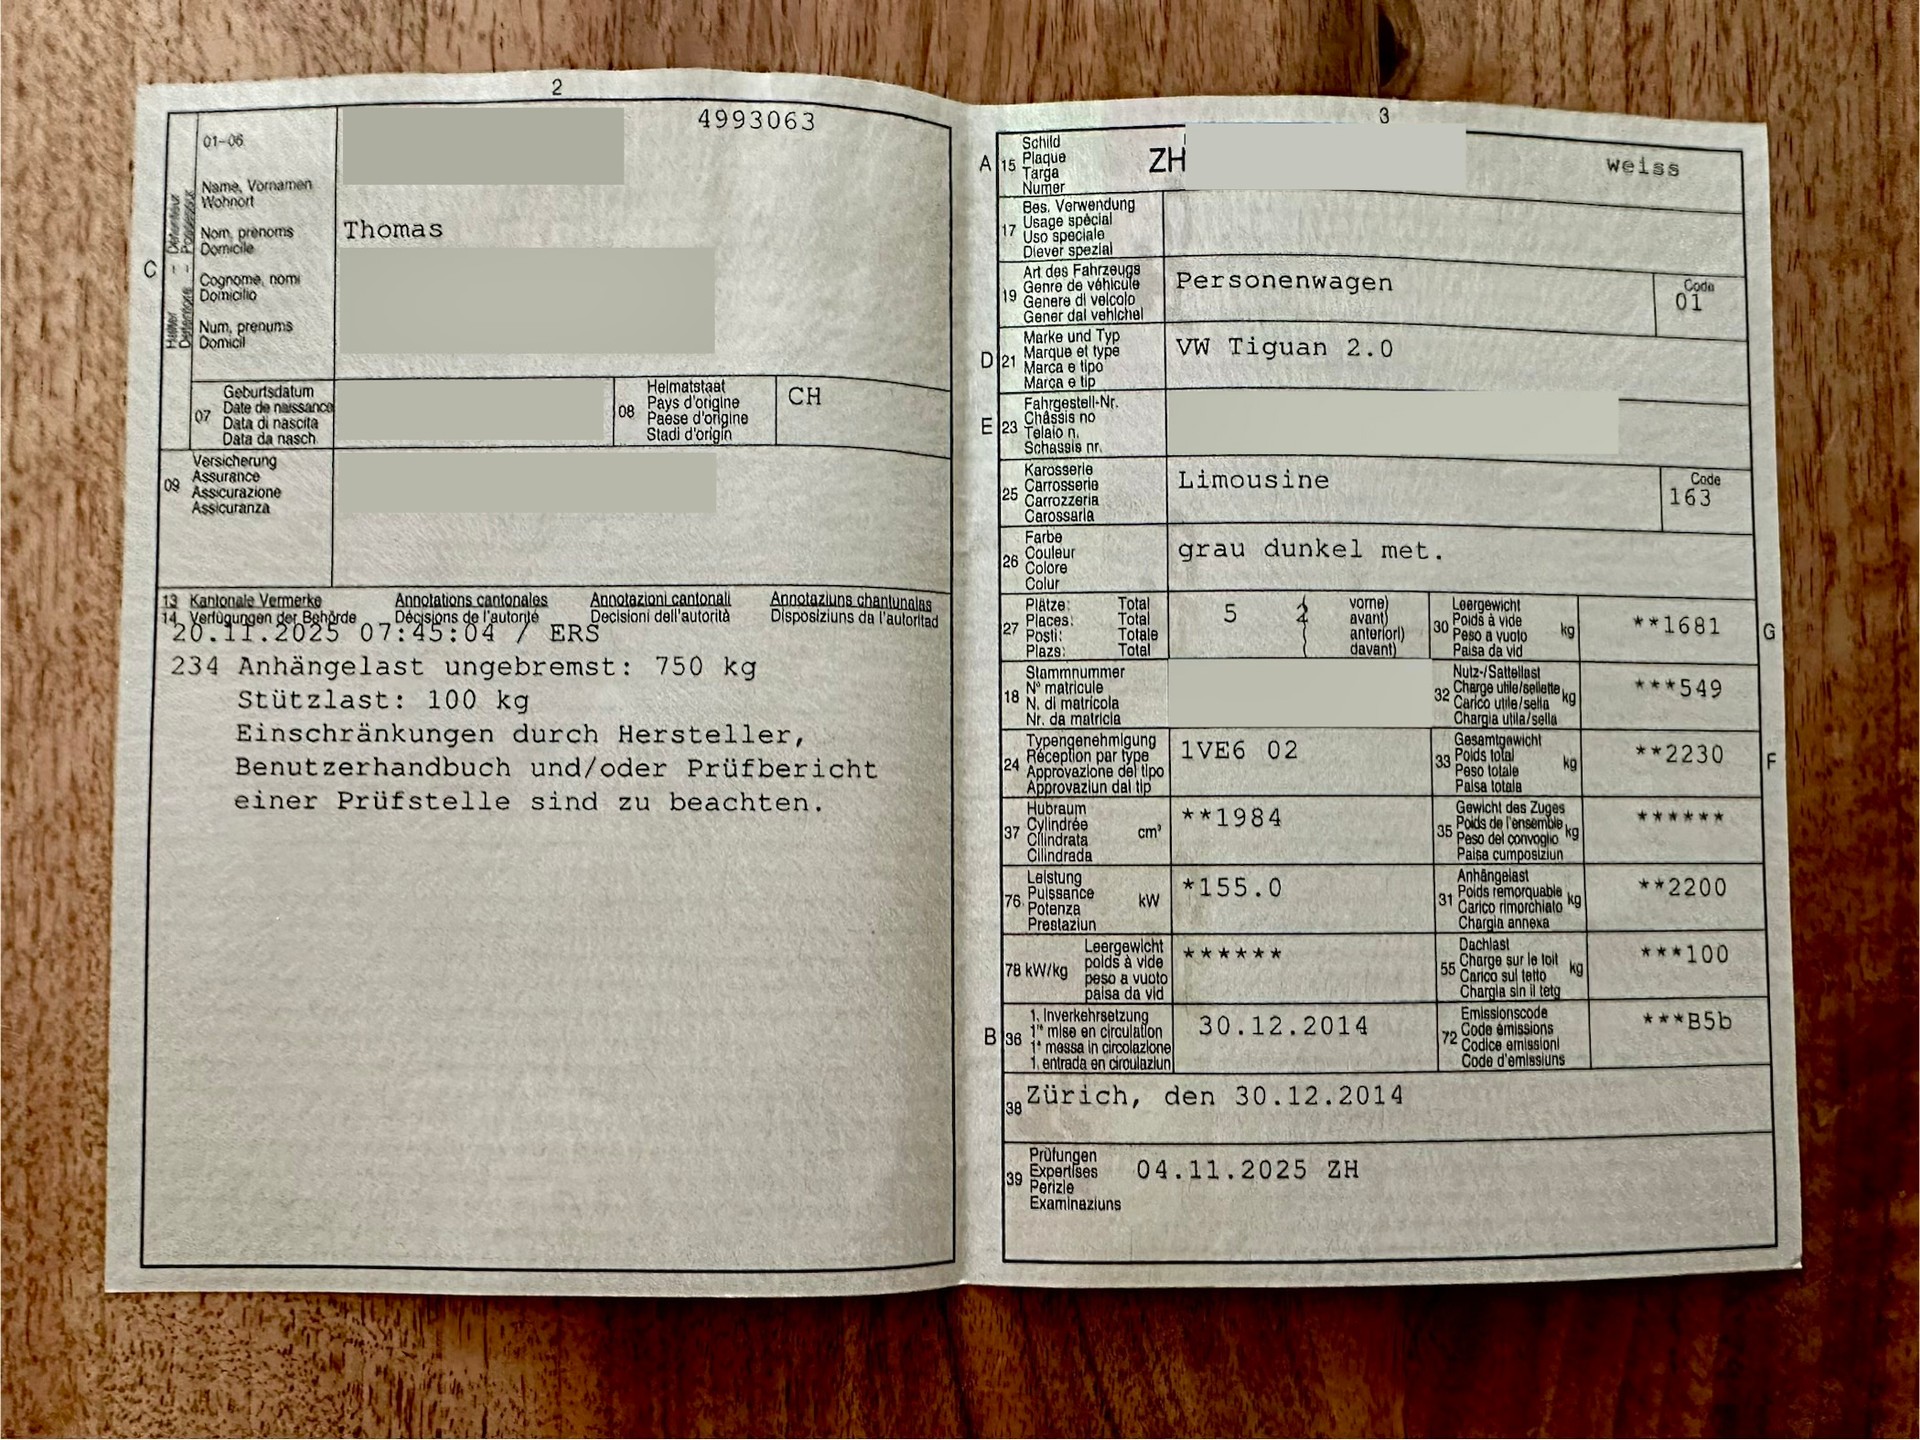 2
01-06
4993063
Name, Vornamen
Wohnort
Nom, prénoms
Domicile
Cognome, nomi
Domicilio
Num, prenums
Domicil
C
Halter - Détenteur
Detentore - Possessur
Thomas
07
Geburtsdatum
Date de naissance
Data di nascita
Data da nasch.
08
Heimatstaat
Pays d'origine
Paese d'origine
Stadi d'origin
CH
09
Versicherung
Assurance
Assicurazione
Assicuranza
13 Kantonale Vermerke Annotations cantonales Annotazioni cantonali Annotaziuns chantunalas
14 Verfügungen der Behörde Décisions de l'autorité Decisioni dell'autorità Disposiziuns da l'autoritad
20.11.2025 07:45:04 / ERS
234 Anhängelast ungebremst: 750 kg
Stützlast: 100 kg
Einschränkungen durch Hersteller,
Benutzerhandbuch und/oder Prüfbericht
einer Prüfstelle sind zu beachten.
3
A 15
Schild
Plaque
Targa
Numer
ZH
weiss
17
Bes. Verwendung
Usage spécial
Uso speciale
Diever spezial
19
Art des Fahrzeugs
Genre de véhicule
Genere di veicolo
Gener dal vehichel
Personenwagen
Code
01
D 21
Marke und Typ
Marque et type
Marca e tipo
Marca e tip
VW Tiguan 2.0
E 23
Fahrgestell-Nr.
Châssis no
Telaio n.
Schassis nr.
25
Karosserie
Carrosserie
Carrozzeria
Carossaria
Limousine
Code
163
26
Farbe
Couleur
Colore
Colur
grau dunkel met.
27
Plätze: Total
Places: Total
Posti: Totale
Plazs: Total
5 2
vorne)
avant)
anteriori)
davant)
30
Leergewicht
Poids à vide
Peso a vuoto
Paisa da vid
kg
**1681
G
18
Stammnummer
N° matricule
N. di matricola
Nr. da matricla
32
Nutz-/Sattellast
Charge utile/sellette
Carico utile/sella
Chargia utila/sella
kg
***549
24
Typengenehmigung
Réception par type
Approvazione del tipo
Approvaziun dal tip
1VE6 02
33
Gesamtgewicht
Poids total
Peso totale
Paisa totala
kg
**2230
F
37
Hubraum
Cylindrée
Cilindrata
Cilindrada
cm³
**1984
35
Gewicht des Zuges
Poids de l'ensemble
Peso del convoglio
Paisa cumposiziun
kg
******
76
Leistung
Puissance
Potenza
Prestaziun
kW
*155.0
31
Anhängelast
Poids remorquable
Carico rimorchiato
Chargia annexa
kg
**2200
78 kW/kg
Leergewicht
poids à vide
peso a vuoto
paisa da vid
******
55
Dachlast
Charge sur le toit
Carico sul tetto
Chargia sin il tetg
kg
***100
B 36
1. Inverkehrsetzung
1re mise en circulation
1a messa in circolazione
1. entrada en circulaziun
30.12.2014
72
Emissionscode
Code émissions
Codice emissioni
Code d'emissiuns
***B5b
38
Zürich, den 30.12.2014
39
Prüfungen
Expertises
Perizie
Examinaziuns
04.11.2025 ZH